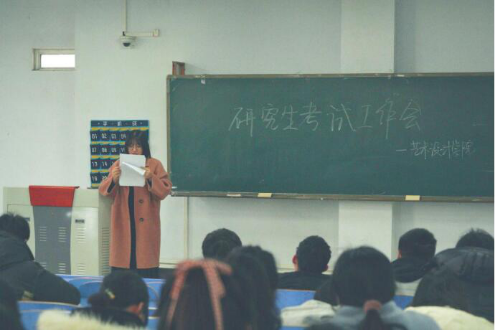 研究生考试工作会
—艺术设计学院